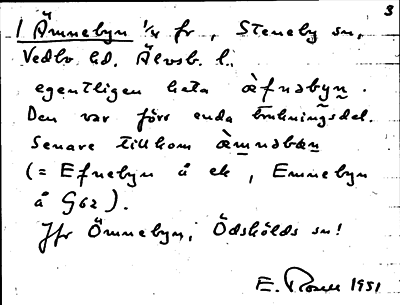 3
1 Ämnebyn 1/4 fr, Steneby sn,
Vedbo hd. Älvsb. l.
egentligen heta àfnəbyn.
Den var förr enda brukningsdel.
Senare tillkom àmnəbän
(= Efnebyn å ek, Emnebyn
å G62).
Jfr Ömnebyn, Ödskölds sn!
E. Rosell 1951